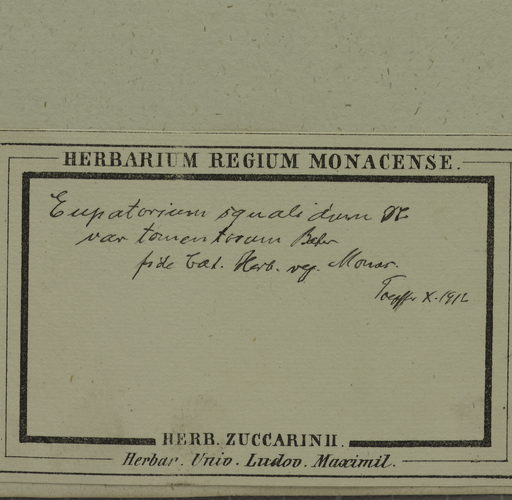 HERBARIUM REGIUM MONACENSE.
Eupatorium squalidum DC
var tomentosum Baker
fide Cat. Herb. reg. Monac.
Toepffer X. 1912
HERB. ZUCCARINII.
Herbar. Univ. Ludov. Maximil.